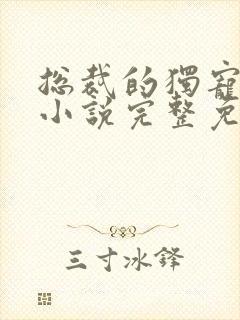 总裁的獨寵
小說完整免
三寸冰鋒